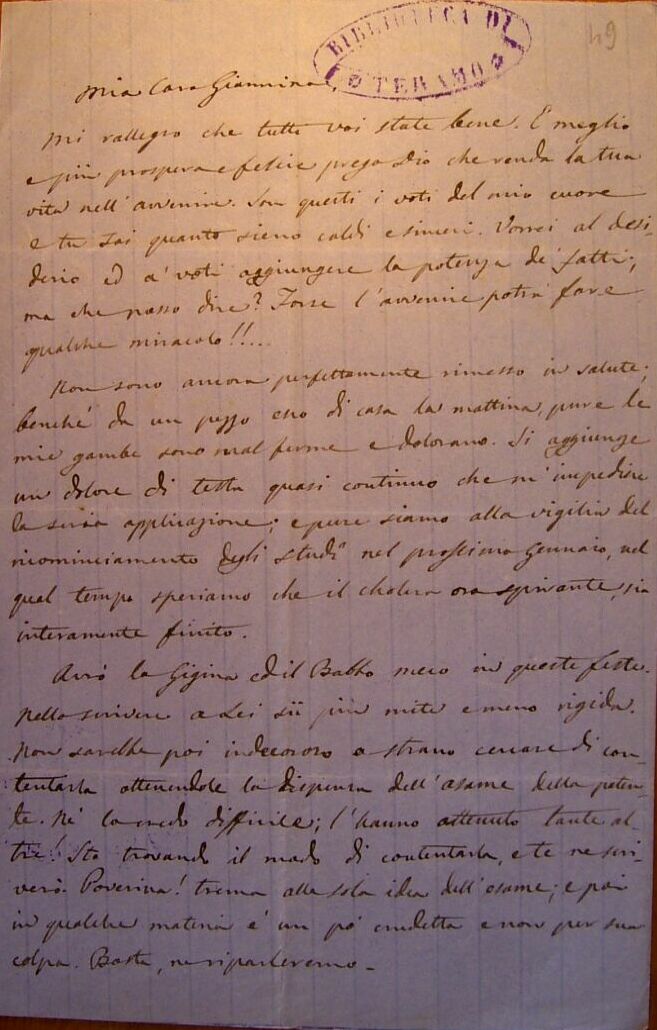 BIBLIOTECA DI
TERAMO
49
Mia Cara Giannina,
Mi rallegro che tutti voi state bene. E meglio
e più prospera e felice prego Dio che renda la tua
vita nell'avvenire. Son questi i voti del mio cuore
e tu sai quanto sieno caldi e sinceri. Vorrei al desi-
derio ed a' voti aggiungere la potenza de' fatti;
ma che posso dire? Forse l'avvenire potrà fare
qualche miracolo!!...
Non sono ancora perfettamente rimesso in salute;
benchè da un pezzo esco di casa la mattina, pure le
mie gambe sono mal ferme e dolorano. Si aggiunge
un dolore di testa quasi continuo che m'impedisce
la seria applicazione; e pure siamo alla vigilia del
ricominciamento degli studî nel prossimo Gennaio, nel
qual tempo speriamo che il cholera ora spirante, sia
interamente finito.
Avrò la Gigina ed il Babbo meco in queste feste.
Nello scrivere a Lei sii più mite e meno rigida.
Non sarebbe poi indecoroso o strano cercare di con-
tentarla ottenendole la dispensa dell'esame della paten-
te. Nè lo credo difficile; l'hanno ottenuto tante al-
tre! Sto trovando il modo di contentarla, e te ne scri-
verò. Poverina! trema alla sola idea dell'esame; e poi
in qualche materia è un pò crudetta e non per sua
colpa. Basta, ne riparleremo -